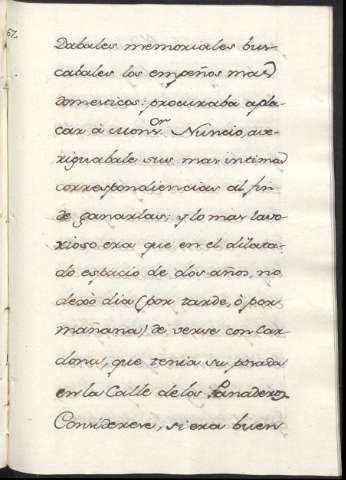 67.
Dabales memoriales bus-
cabales los empeños mas
domesticos: procuraba apla-
car à Monsr. Nuncio, ave-
riguabale sus mas intimas
correspondiencias al fin
de ganarlas: y lo mas lavo-
rioso era que en el dilata-
do espacio de dos años, no
dexò dia (por tarde, ò por
mañana) de verse con Car-
dona, que tenia su posada
en la Calle de los Panaderos.
Considerese, si era buen